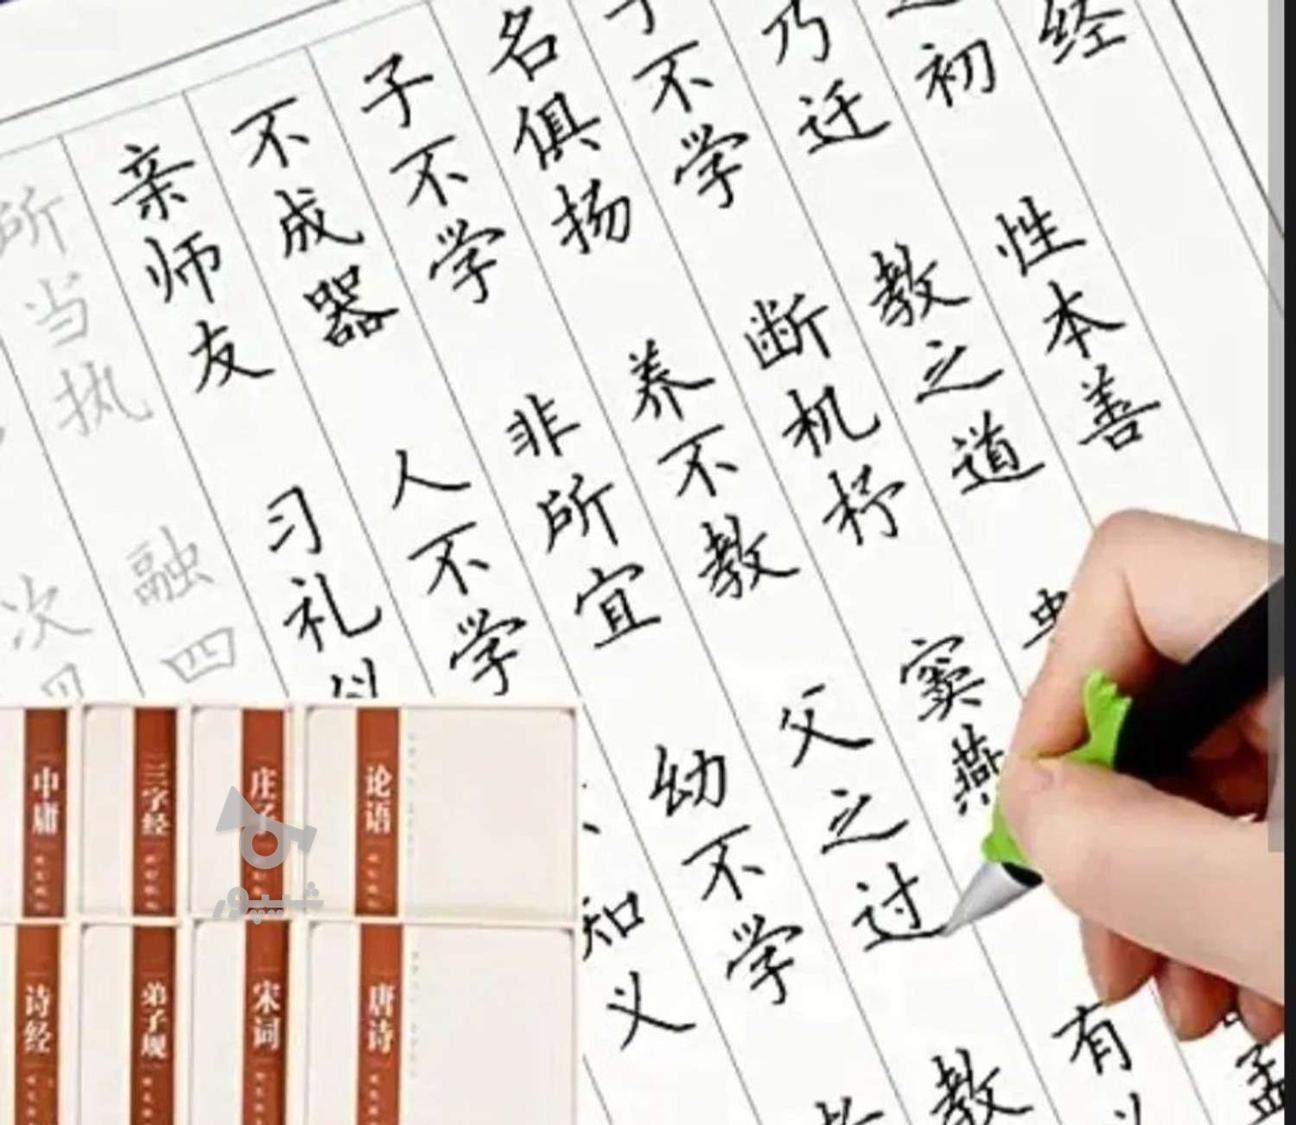 经
初 性本善
乃迁 教之道 孟
不学 断机杼 窦燕 有
名俱扬 养不教 父之过 教
子不学 非所宜 幼不学
不成器 人不学 知义
亲师友 习礼
所当执 融四
次
论语
庄子
三字经
中庸
唐诗
宋词
弟子规
诗经
شیپور